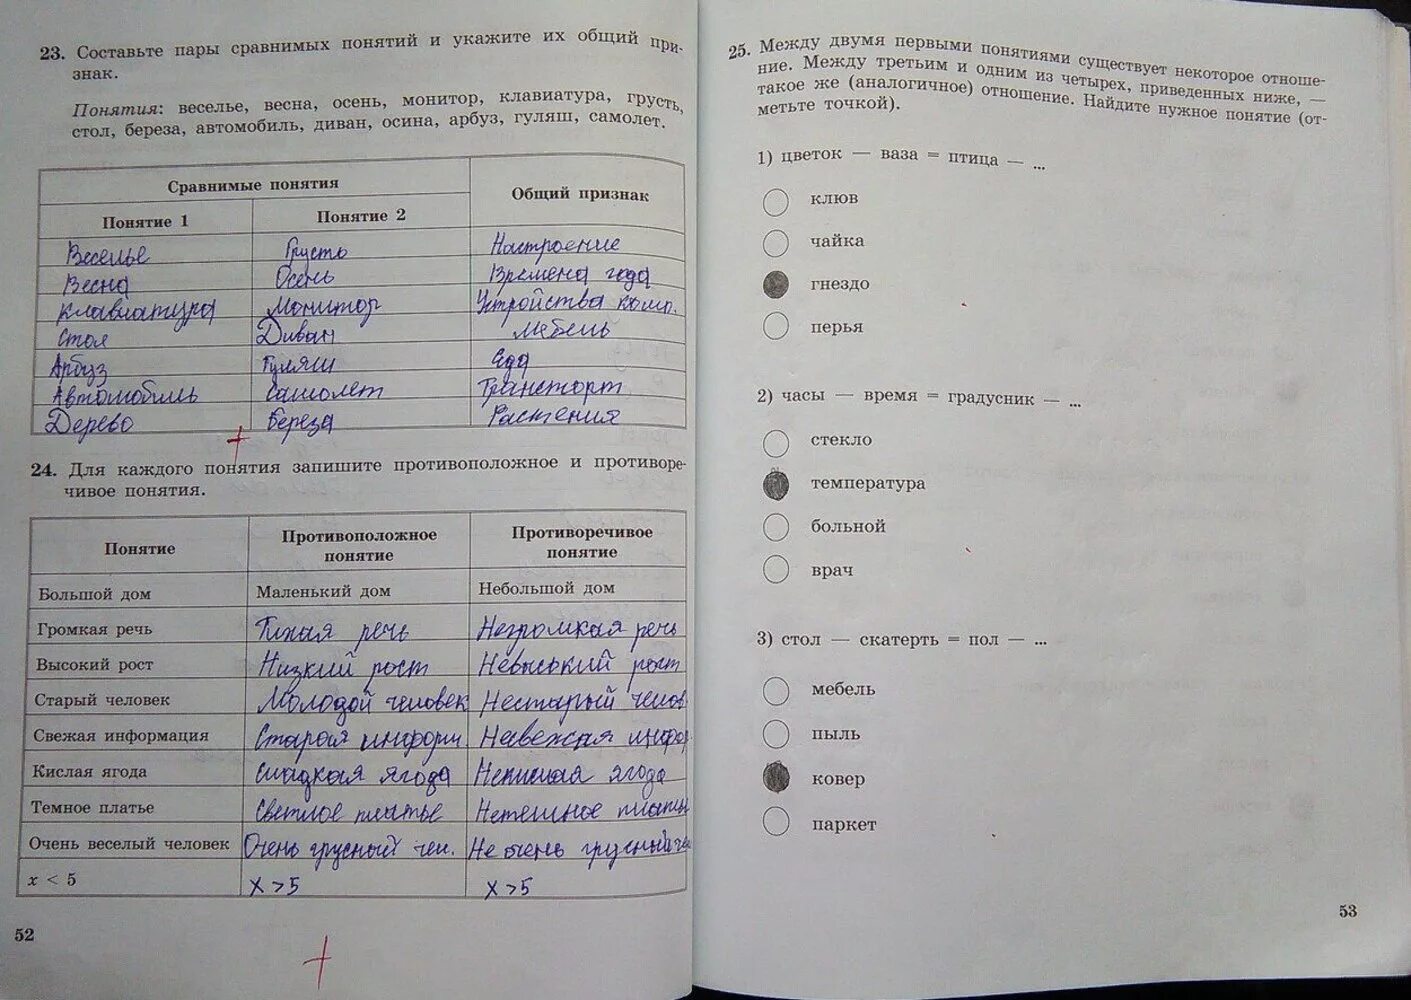 23. Составьте пары сравнимых понятий и укажите их общий при-
знак.
Понятия: веселье, весна, осень, монитор, клавиатура, грусть,
стол, береза, автомобиль, диван, осина, арбуз, гуляш, самолет.
Сравнимые понятия
Общий признак
Понятие 1 Понятие 2
Веселье Грусть Настроение
Весна Осень Времена года
Клавиатура Монитор Устройства комп.
Стол Диван Мебель
Арбуз Гуляш Еда
Автомобиль Самолет Транспорт
Дерево Береза Растения
24. Для каждого понятия запишите противоположное и противоре-
чивое понятия.
Понятие Противоположное понятие Противоречивое понятие
Большой дом Маленький дом Небольшой дом
Громкая речь Тихая речь Негромкая речь
Высокий рост Низкий рост Невысокий рост
Старый человек Молодой человек Нестарый челов
Свежая информация Старая информ. Несвежая инфор
Кислая ягода Сладкая ягода Некислая ягода
Темное платье Светлое платье Нетемное платье
Очень веселый человек Очень грустный чел. Не очень грустный че
x < 5 X > 5 X > 5
52
25. Между двумя первыми понятиями существует некоторое отноше-
ние. Между третьим и одним из четырех, приведенных ниже, —
такое же (аналогичное) отношение. Найдите нужное понятие (от-
метьте точкой).
1) цветок — ваза = птица — ...
клюв
чайка
гнездо
перья
2) часы — время = градусник — ...
стекло
температура
больной
врач
3) стол — скатерть = пол — ...
мебель
пыль
ковер
паркет
53